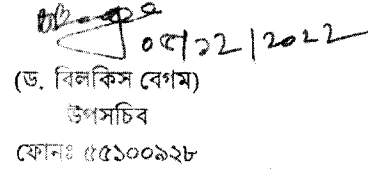 ০৫/১২/২০২২
(ড. বিলকিস বেগম)
উপসচিব
ফোনঃ ৫৫১০০৯২৮